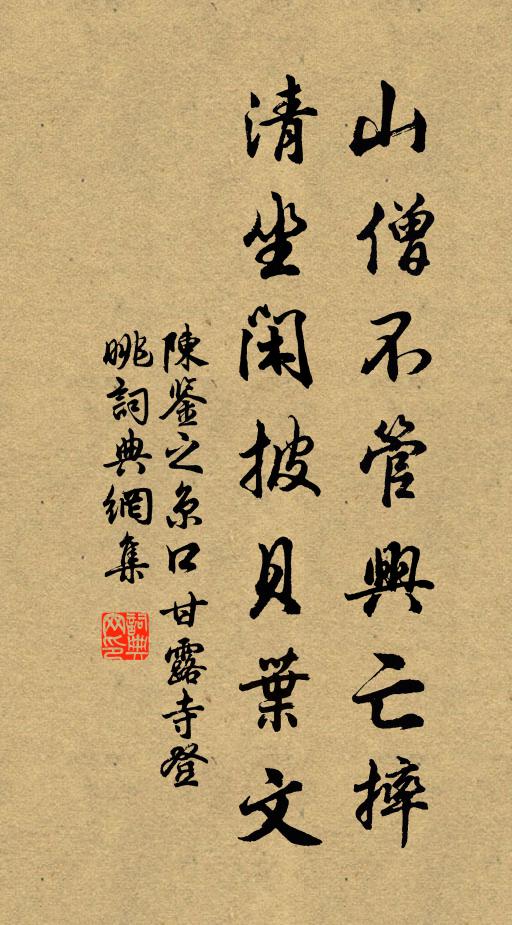 山僧不管興亡摔
清坐閑披貝葉文
陳鑒之京口甘露寺登
眺詞典網集
詞典
网印